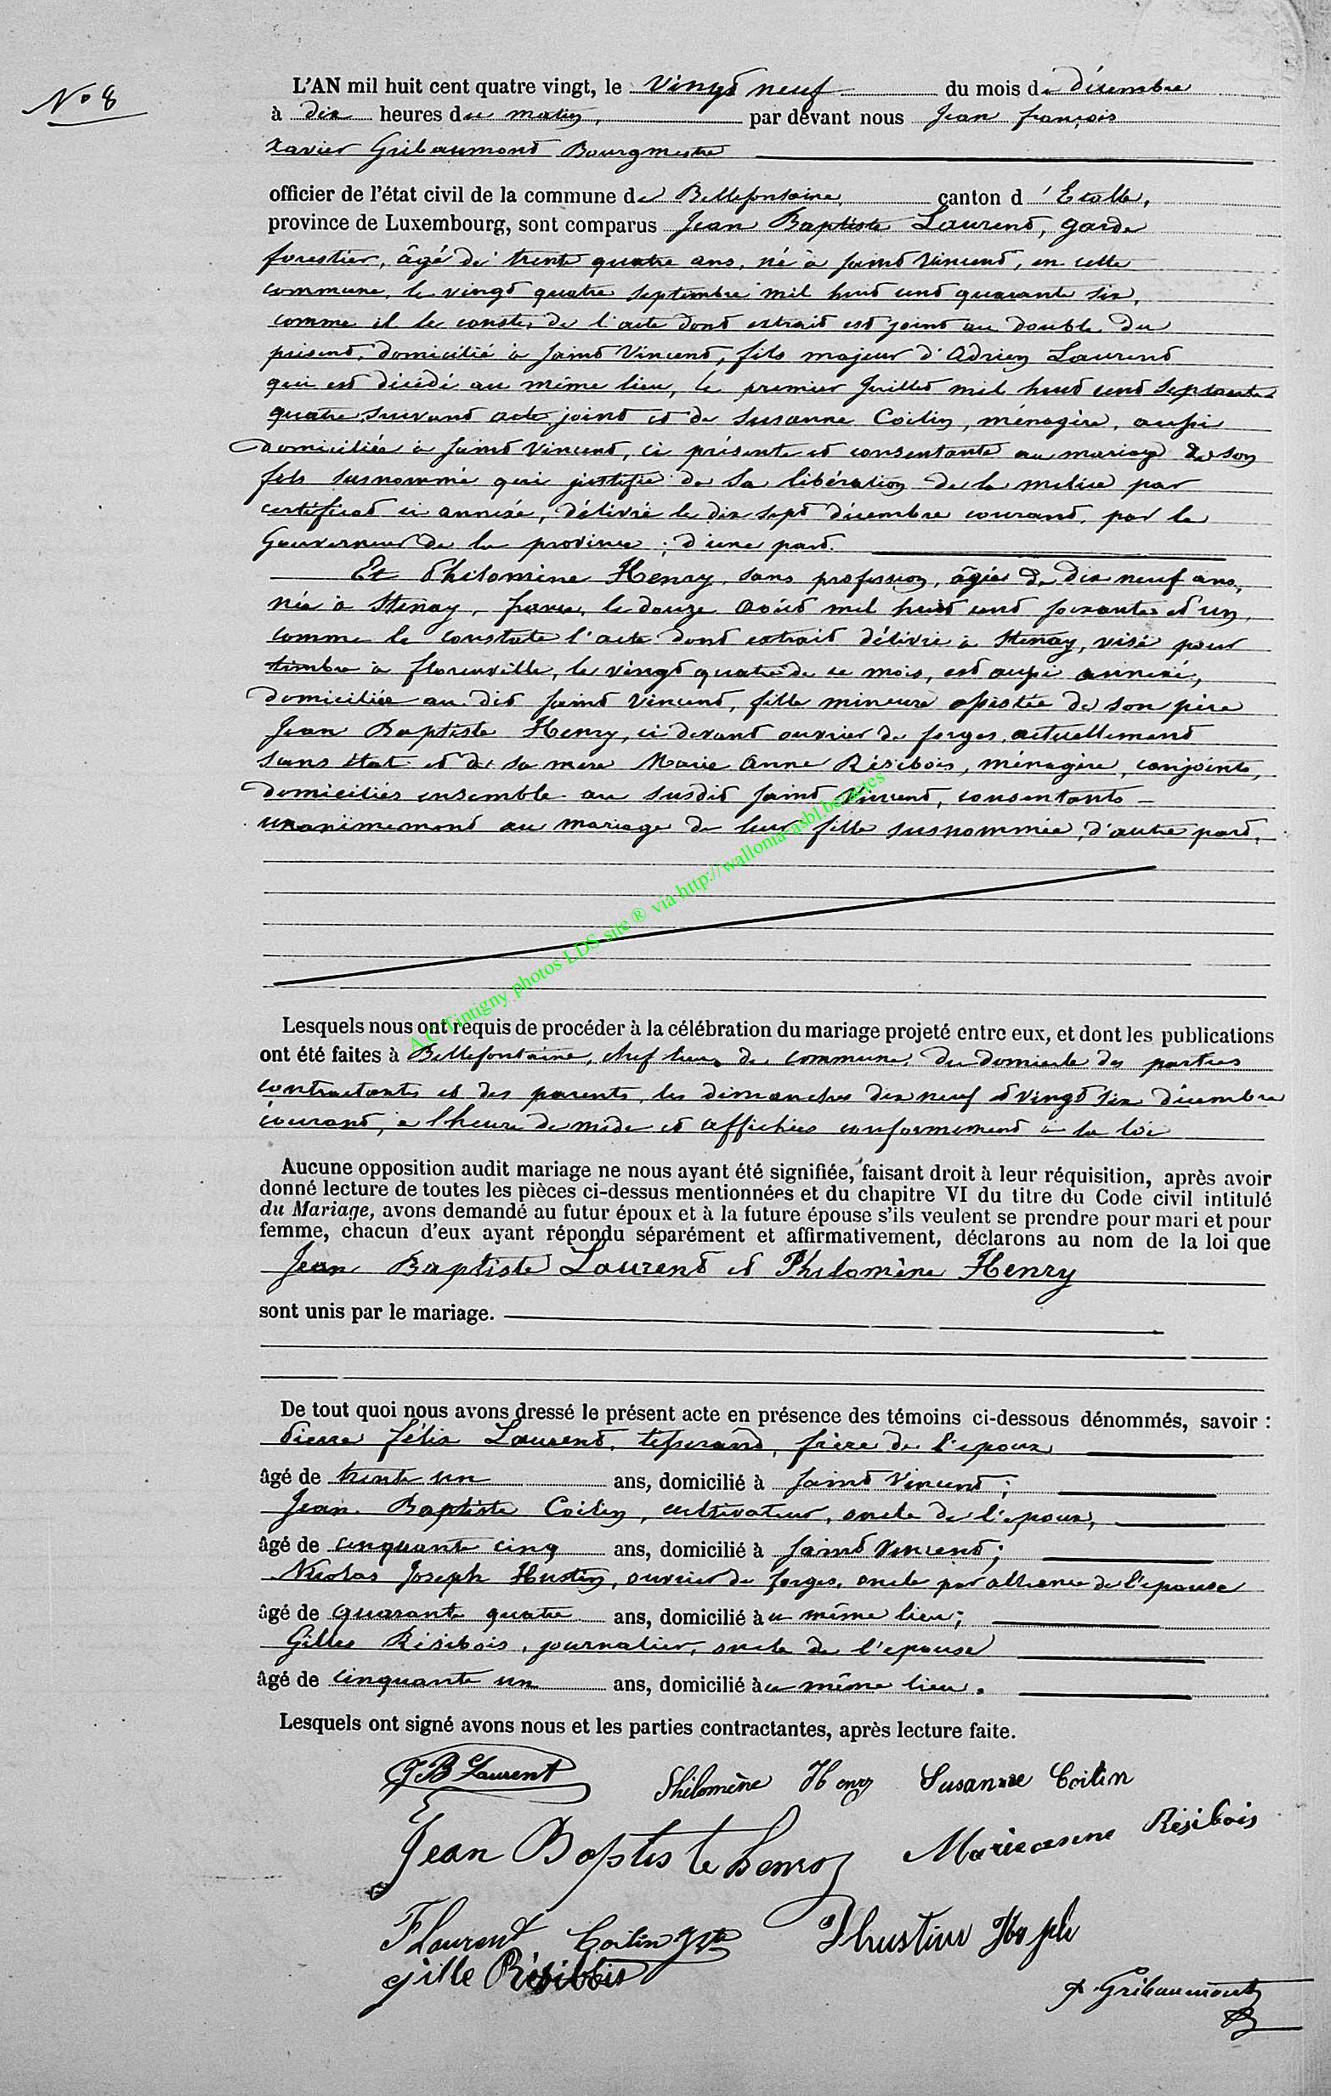 No 8
L'AN mil huit cent quatre vingt, le vingt neuf du mois de décembre
à dix heures du matin, par devant nous Jean françois
Xavier Gribaumont Bourgmestre
officier de l'état civil de la commune de Bellefontaine, canton d'Etalle,
province de Luxembourg, sont comparus Jean Baptiste Laurent, garde
forestier, âgé de trente quatre ans, né à Saint Vincent, en cette
commune, le vingt quatre septembre mil huit cent quarante six,
comme il le conste, de l'acte dont extrait est joint au double du
présent, domicilié à Saint Vincent, fils majeur d'Adrien Laurent
qui est décédé au même lieu, le premier Juillet mil huit cent septante
quatre, suivant acte joint et de Susanne Coitin, ménagère, aussi
domiciliée à Saint Vincent, ci présente et consentante au mariage de son
fils susnommé qui justifie de sa libération de la milice par
certificat ci annexé, délivré le dix sept décembre courant, par le
Gouverneur de la province ; d'une part.
Et Philomène Henry, sans profession, âgée de dix neuf ans,
née à Stenay, france, le douze août mil huit cent soixante et un,
comme le constate l'acte dont extrait délivré à Stenay, visé pour
timbre à florenville, le vingt quatre de ce mois, est aussi annexé,
domiciliée au dit Saint Vincent, fille mineure assistée de son père
Jean Baptiste Henry, ci devant ouvrier de forges, actuellement
sans état et de sa mère Marie Anne Résibois, ménagère, conjoints,
domiciliés ensemble au susdit Saint Vincent, consentants
unanimement au mariage de leur fille susnommée, d'autre part.
A.C Tintigny photos LDS site ® via http://wallonia-asbl.be/actes
Lesquels nous ont requis de procéder à la célébration du mariage projeté entre eux, et dont les publications
ont été faites à Bellefontaine, chef lieu de commune, du domicile des parties
contractantes et des parents, les dimanches dix neuf et vingt six décembre
courant, à l'heure de midi et affichées conformément à la loi
Aucune opposition audit mariage ne nous ayant été signifiée, faisant droit à leur réquisition, après avoir
donné lecture de toutes les pièces ci-dessus mentionnées et du chapitre VI du titre du Code civil intitulé
du Mariage, avons demandé au futur époux et à la future épouse s'ils veulent se prendre pour mari et pour
femme, chacun d'eux ayant répondu séparément et affirmativement, déclarons au nom de la loi que
Jean Baptiste Laurent et Philomène Henry
sont unis par le mariage.
De tout quoi nous avons dressé le présent acte en présence des témoins ci-dessous dénommés, savoir :
Pierre félix Laurent, tisserand, frère de l'epoux
âgé de trente un ans, domicilié à Saint Vincent ;
Jean Baptiste Coitin, cultivateur, oncle de l'epoux,
âgé de cinquante cinq ans, domicilié à Saint Vincent ;
Nicolas Joseph Hustin, ouvrier de forges, oncle par alliance de l'epouse
âgé de quarante quatre ans, domicilié au même lieu ;
Gilles Résibois, journalier, oncle de l'epouse
âgé de cinquante un ans, domicilié au même lieu.
Lesquels ont signé avons nous et les parties contractantes, après lecture faite.
J B Laurent Philomène Henry Susanne Coitin
Jean Baptiste henry Marieanne Résibois
F Laurent Coitin Jhustin
gille Résibois
Gribaumont